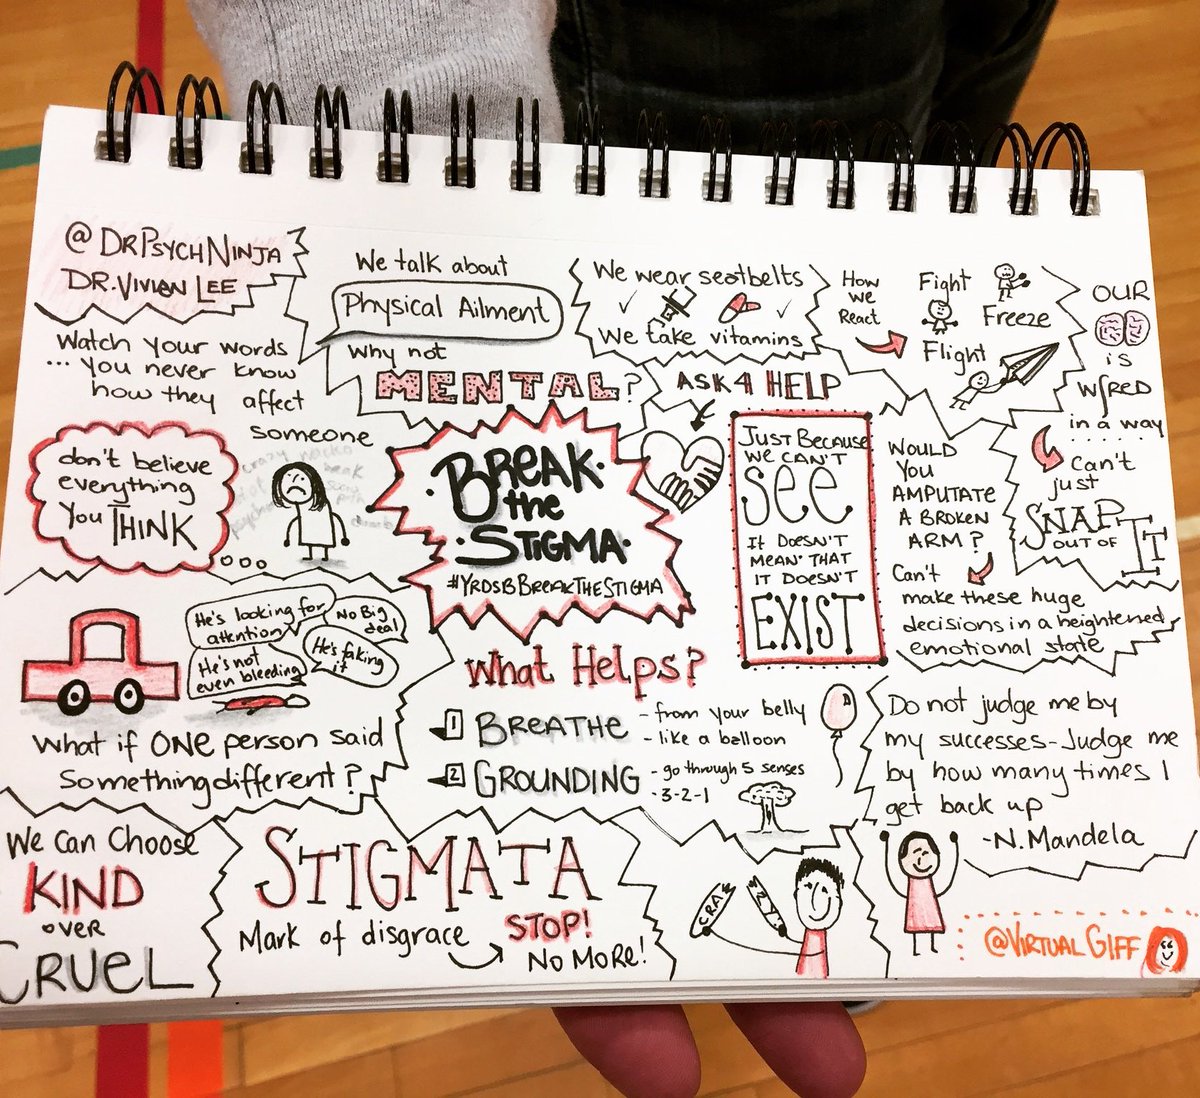 @DRPSYCHNINJA
DR. VIVIAN LEE
Watch your words
... you never know
how they affect
someone
crazy wacko
weak
psycho
dumb
don't believe
everything
you THINK
We talk about
Physical Ailment
why not
MENTAL?
We wear seatbelts
We take vitamins
How
we
React
Fight
Freeze
Flight
OUR
is
WIRED
in a way
.....
can't
just
SNAP
OUT OF
IT
ASK 4 HELP
BREAK
the
STIGMA
#YRDSBBREAKTHESTIGMA
JUST BECAUSE
WE CAN'T
SEE
IT DOESN'T
MEAN THAT
IT DOESN'T
EXIST
WOULD
YOU
AMPUTATE
A BROKEN
ARM?
Can't
make these huge
decisions in a heightened
emotional state
He's looking for
attention
No Big
deal
He's not
even bleeding
He's faking
it
What if ONE person said
Something different?
What Helps?
1 BREATHE - from your belly
- like a balloon
2 GROUNDING - go through 5 senses
- 3-2-1
Do not judge me by
my successes-Judge me
by how many times I
get back up
-N. Mandela
We Can Choose
KIND
OVER
CRUEL
STIGMATA
Mark of disgrace
STOP!
NO MORE!
CRA
ZY
@VIRTUALGIFF